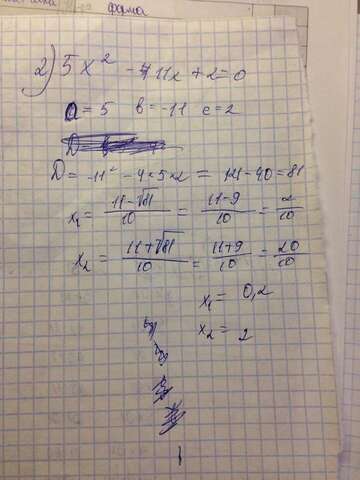 форма
2) 5x² - 11x + 2 = 0
a = 5 в = -11 c = 2
D = -11² - 4×5×2 = 121 - 40 = 81
x₁ = (11-√81)/10 = (11-9)/10 = 2/10
x₂ = (11+√81)/10 = (11+9)/10 = 20/10
x₁ = 0,2
x₂ = 2